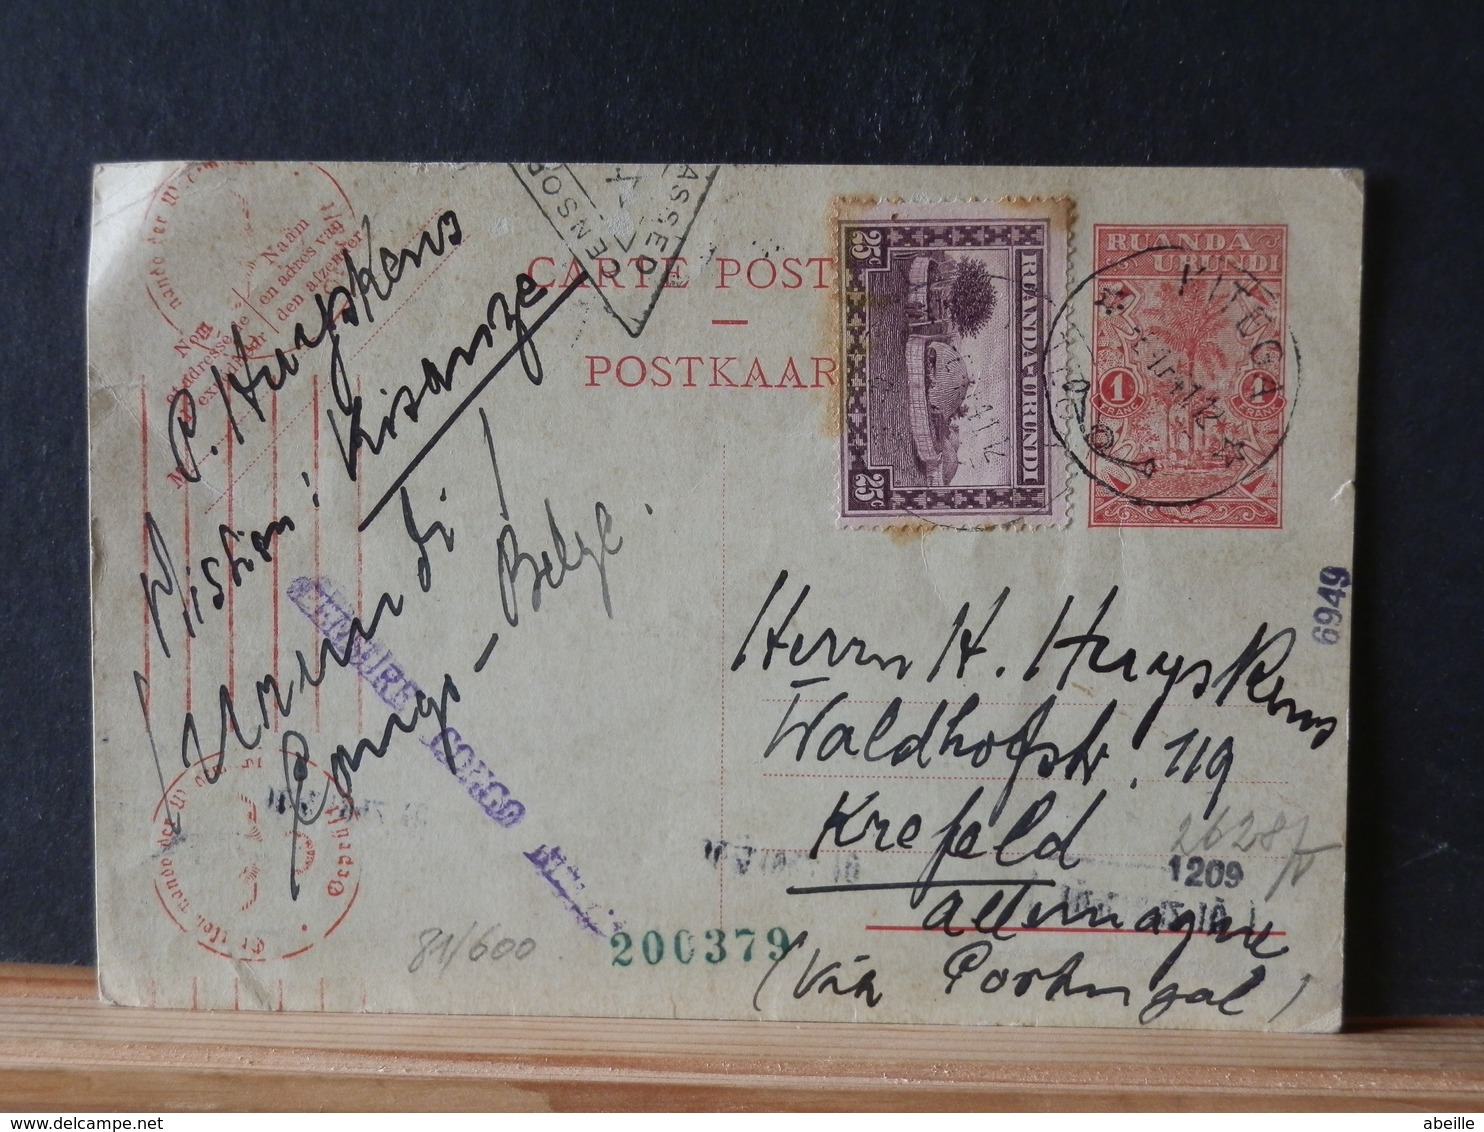 CARTE POST
POSTKAAR
Naam
en adres van
den afzender
Nom
et adresse de
P. Huyskens
Mission: Kisanze
Urundi!
Congo-Belge.
CENSURE CONGO
PASSED
CENSOR
RUANDA-URUNDI
25c
25c
RUANDA
URUNDI
1 FRANC
1 FRANC
KITEGA
6949
Herrn H. Huyskens
Waldhofstr. 119
Krefeld
Allemagne
(Via Portugal)
1209
81/600
200379
Geprüft
abeille